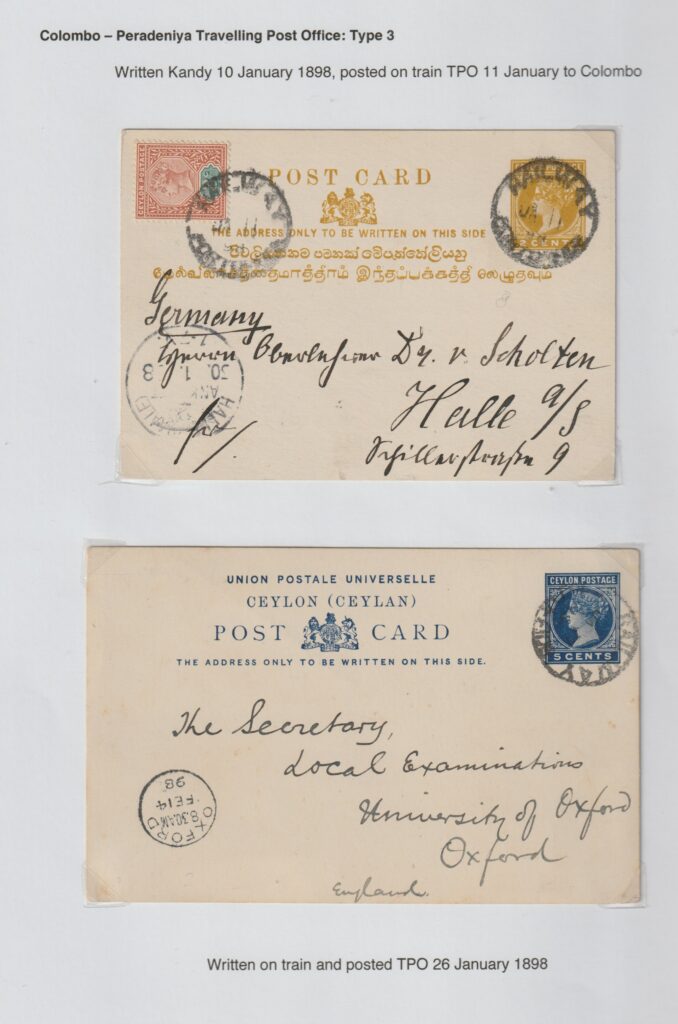 Colombo – Peradeniya Travelling Post Office: Type 3
Written Kandy 10 January 1898, posted on train TPO 11 January to Colombo
CEYLON POSTAGE
RAILWAY
JA 11
98
POST CARD
THE ADDRESS ONLY TO BE WRITTEN ON THIS SIDE
පමනක් මේපැත්තේලියනු
மேல்விலாசத்தைமாத்திரம் இந்தப்பக்கத்தி லெழுதவும்
RAILWAY
JA 11
2 CENTS
Germany
Herrn Oberlehrer Dr. v. Scholten
Halle a/S
Schillerstraße 9
30. 1
8
UNION POSTALE UNIVERSELLE
CEYLON (CEYLAN)
POST CARD
THE ADDRESS ONLY TO BE WRITTEN ON THIS SIDE.
CEYLON POSTAGE
5 CENTS
RAILWAY
The Secretary,
Local Examinations
University of Oxford
Oxford
England.
OXFORD
8.30AM
FE 14
98
Written on train and posted TPO 26 January 1898